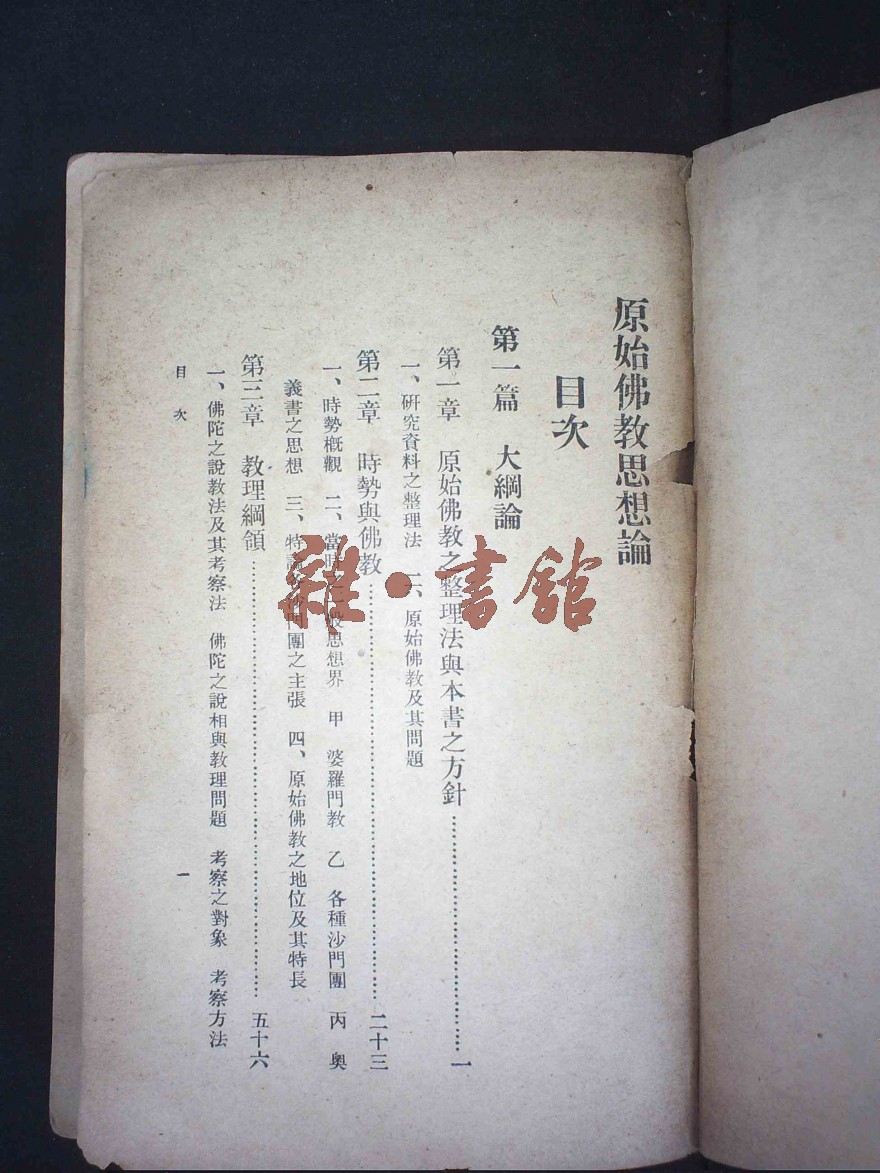 原始佛教思想論
目次
第一篇　大綱論
第一章　原始佛教之整理法與本書之方針……一
一、研究資料之整理法　二、原始佛教及其問題
第二章　時勢與佛教……二十三
一、時勢概觀　二、當時　思想界　甲　婆羅門教　乙　各種沙門團　丙　奧
義書之思想　三、特　沙門團之主張　四、原始佛教之地位及其特長
第三章　教理綱領……五十六
一、佛陀之說教法及其考察法　佛陀之說相與教理問題　考察之對象　考察方法
目次
一
雜·書館